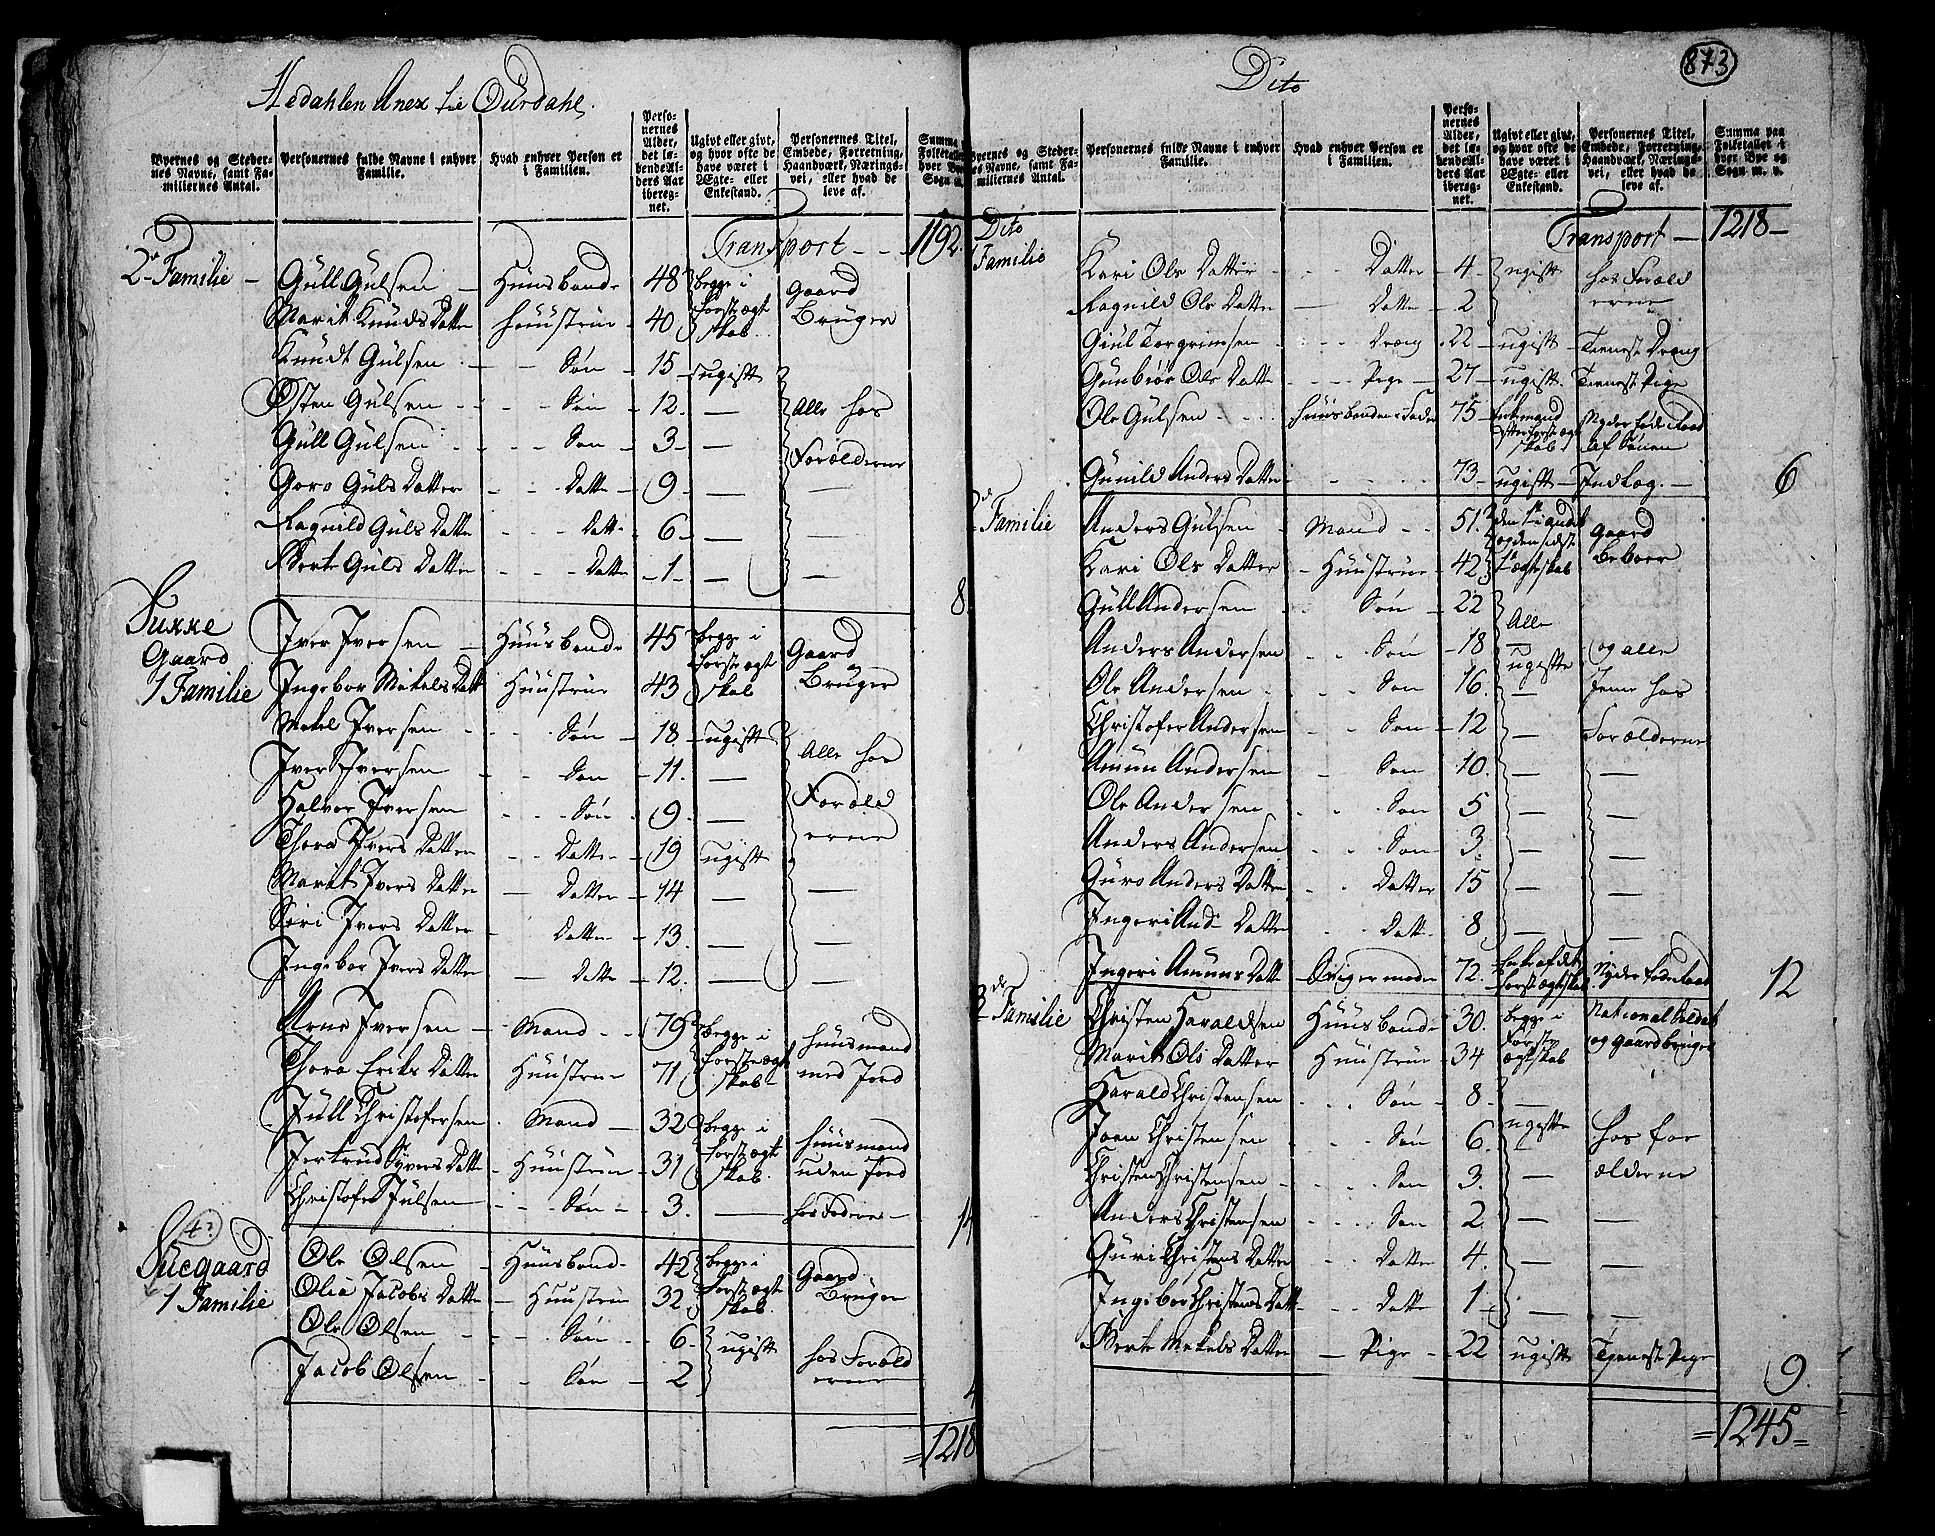 Hedahlen Anex til Ourdahl.
Byernes og Stedernes Navne, samt Familiernes Antal.
Personernes fulde Navne i enhver Familie.
Hvad enhver Person er i Familien.
Personernes Alder, det løbende Alders Aar iberegnet.
Ugivt eller givt, og hvor ofte de have været i Ægte- eller Enkestand.
Personernes Titel, Embede, Forretning, Haandværk, Næringsvei, eller hvad de leve af.
Summa Folketallet hver Bye Sogn
Transport - - 1192
2de Familie - Gull Gulsen - Huusbonde 48 begge i første ægteskab Gaard Bruger
Marit Knuds Datter huustrue - 40
Knudt Gulsen - Søn - 15 - ugift
Østen Gulsen - - Søn - 12. - Alle hos
Gull Gulsen - - Søn - 3 - Forælderne
Goro Guls Datter - - Datte - 9 - -
Ragnild Guls Datte - - Datt - 6 - -
Berte Guls Datte - - Datte - 1 - -
8.
Sukke Gaard
1 Familie
Iver Iversen - Huusbonde 45 begge i første ægteskab Gaard Bruger
Ingebor Mikels Datt Huustrue 43
Mikel Iversen - Søn - 18 - ugift
Iver Iversen - - Søn - 11. - Alle hos
Halvor Iversen - - Søn - 9 - Forælderne
Thora Ivers Datter - - Datter - 19 ugift
Marit Ivers Datter - Datter - 14 - -
Siri Ivers Datter - Datter - 13. - -
Ingebor Ivers Datter - Datte - 12. -
Arne Iversen - Mand - - 79 begge i første ægteskab huusmand med Jord
Thora Eriks Datter Huustrue 71
Jull Christofersen - Mand - 32 begge i første ægteskab huusmand uden Jord
Jertrud Syvers Datt - Huustrue - 31
Christofer Julsen - - Søn - - 3. -
14
42
Suegaard
1 Familie
Ole Olsen - Huusbond - 42 begge i første ægteskab Gaard Bruger
Olia Jacobs Datter - Huustrue 32
Ole Olsen - - - Søn - - 6. ugift hos Forælderne
Jacob Olsen - - Søn - 2
4
= 1218
873
Dito
Byernes og Stedernes Navne, samt Familiernes Antal.
Personernes fulde Navne i enhver Familie.
Hvad enhver Person er i Familien.
Personernes Alder, det løbende Alders Aar iberegnet.
Ugivt eller givt, og hvor ofte de have været i Ægte- eller Enkestand.
Personernes Titel, Embede, Forretning, Haandværk, Næringsvei, eller hvad de leve af.
Summa paa Folketallet i hver Bye og Sogn m. v.
Transport - 1218 -
Dito
1 Familie
Kari Ols Datter - - - Datter - 4 - ugift hos Forælderne
Ragnild Ols Datter - Datte - 2
Giul Torgrimsen - - - Dreng - 22 - ugift - Tieneste Dreng
Gunbiør Ols Datte - - - Pige - 27 - ugift - Tieneste Pige
Ole Gulsen - - - huusbondens Fader 75 Enkemand efter første ægteskab Nyder føde Raad af Sønen
Gunild Anders Datter - - - 73 - ugift - Indlæg. - 6
2de Familie
Anders Gulsen - Mand - - 51. den 1te i andet og den sidste i 1te ægteskab Gaard Beboer
Kari Ols Datter - Huustrue - 42
Gull Andersen - Søn - 22 Alle ugifte
Anders Andersen - - Søn - 18 - og alle
Ole Andersen - - - Søn - 16. - hos
Christofer Andersen - - Søn - 12 - Forælderne
Amun Andersen - - Søn - 10. - -
Ole Andersen - - Søn - 5 - -
Anders Andersen - - Søn - 3. - -
Guro Anders Datter - - Datter - 15 - -
Ingeri And- Datter - - Datt - 8. - -
Ingeri Amuns Datte Svigermoder 72. Enke af det første ægteskab Nyder føde Raad 12
3de Familie
Christen Haraldsen Huusbonde 30. begge i første ægteskab National Soldat og gaardbruger
Marit Ols Datter Huustrue - 34
Harald Christensen - - - Søn - 8. -
Joen Christensen - - Søn - 6. ugifte hos forælderne
Christen Christensen - - - Søn - 3. -
Anders Christensen - - - Søn - 2. - -
Guri Christens Datter - - Datter - 4. - -
Ingebor Christens Datt - - - Datte - 1 - -
Berte Mikels Datter - Pige - 22 - ugift - Tieneste Pige
9.
= 1245 =